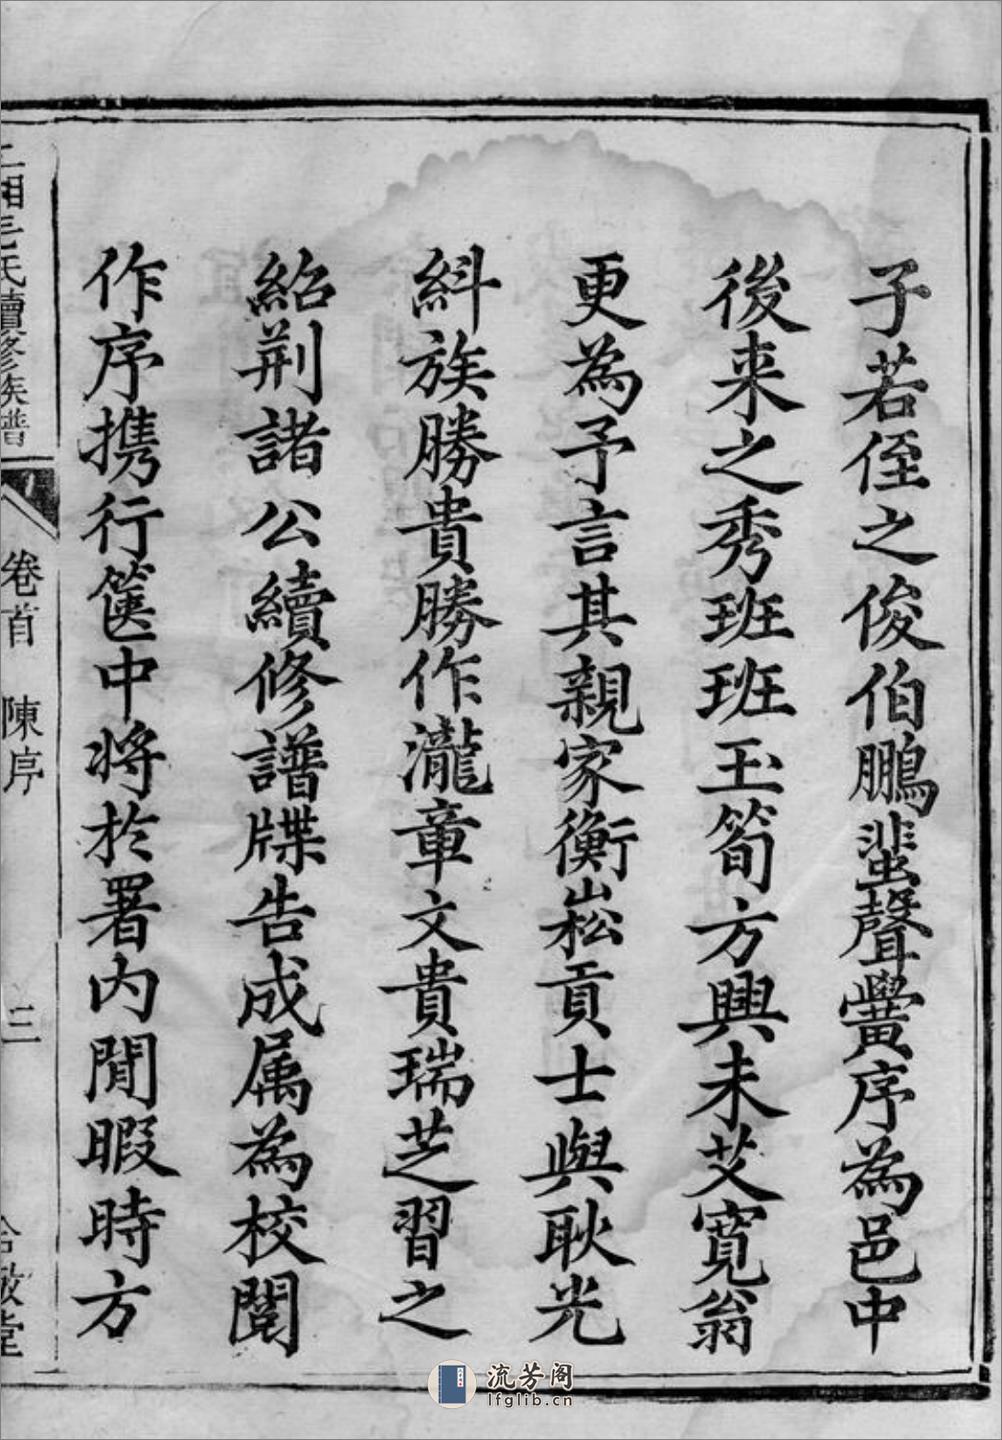 子若侄之俊伯鵬蜚聲黌序為邑中
後来之秀班班玉筍方興未艾寛翁
更為予言其親家衡崧貢士與耿光
紏族勝貴勝作瀧章文貴瑞芝習之
紹荆諸公續修譜牒告成属為校閱
作序携行篋中将於署内閒暇時方
湘毛氏續修族譜
卷首
陳序
三
敬堂
流芳阁
lfglib.cn